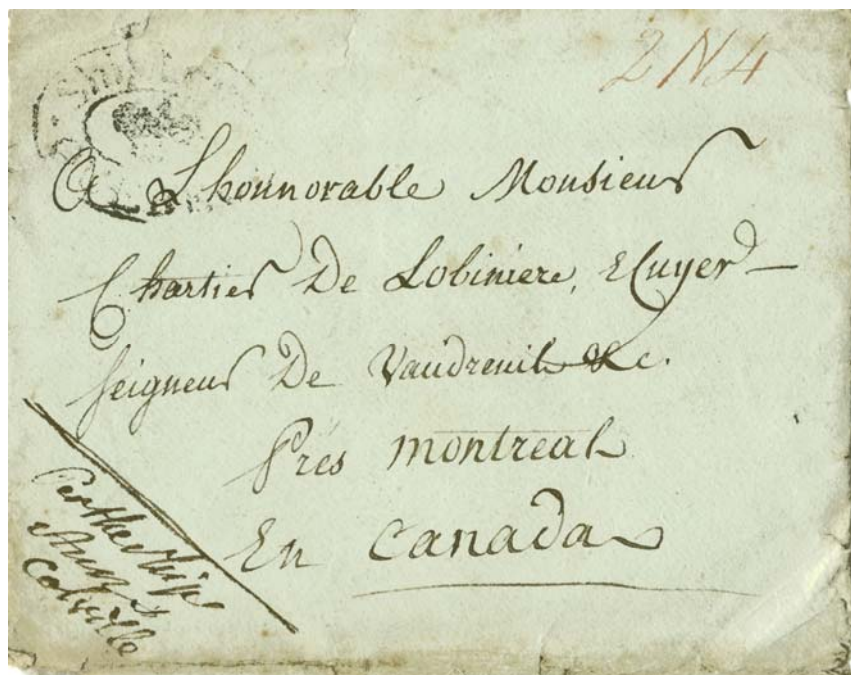 2 N 4
A L'honnorable Monsieur
Chartier De Lobiniere, Ecuyer
Seigneur De Vaudreuil &c.
Prés Montreal
En Canada
Per the Ship
Colville